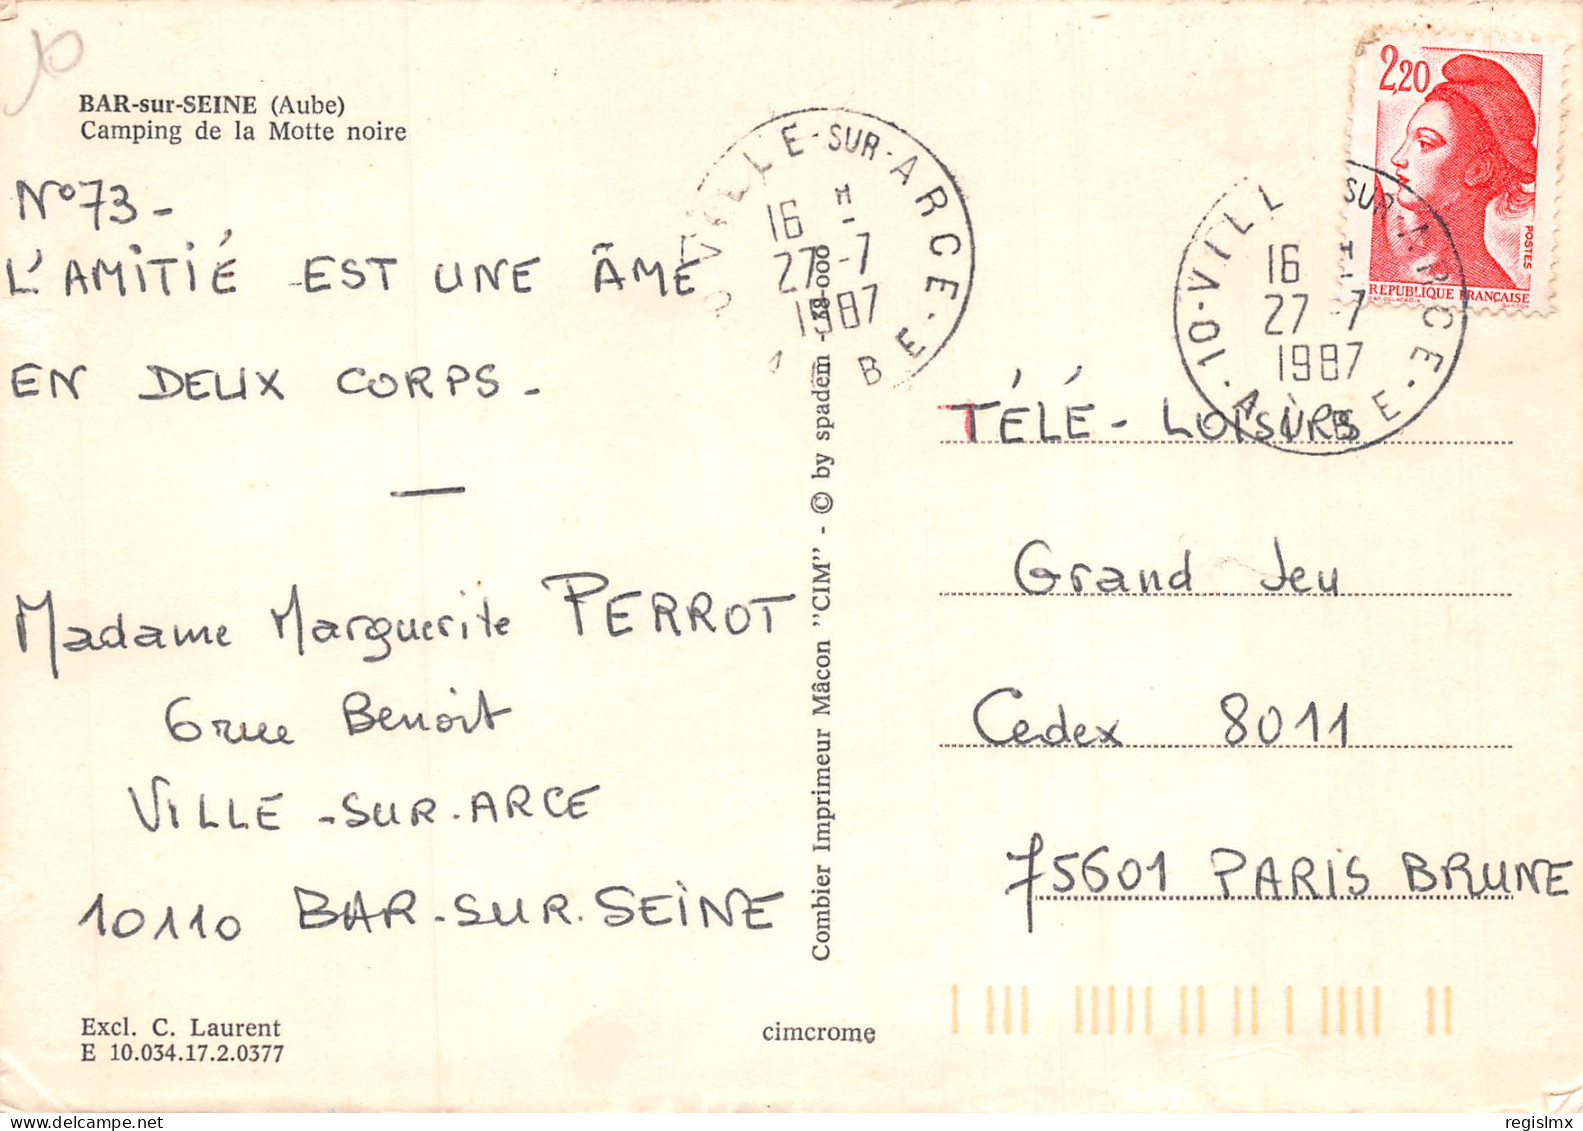 BAR-sur-SEINE (Aube)
Camping de la Motte noire
N°73-
L'AMITIÉ EST UNE ÂME
EN DEUX CORPS-
Madame Marguerite PERROT
6 rue Benoit
VILLE-SUR-ARCE
10110 BAR-SUR-SEINE
Excl. C. Laurent
E 10.034.17.2.0377
cimcrome
Combier Imprimeur Mâcon "CIM" - © by spadem - 38-000
VILLE-SUR-ARCE
16 H
27-7
1987
2,20
POSTES
REPUBLIQUE FRANÇAISE
10-VILLE SUR-ARCE
16 H
27-7
1987
AUBE
TÉLÉ-LOISIRS
Grand Jeu
Cedex 8011
75601 PARIS BRUNE
delcampe.net
regislmx